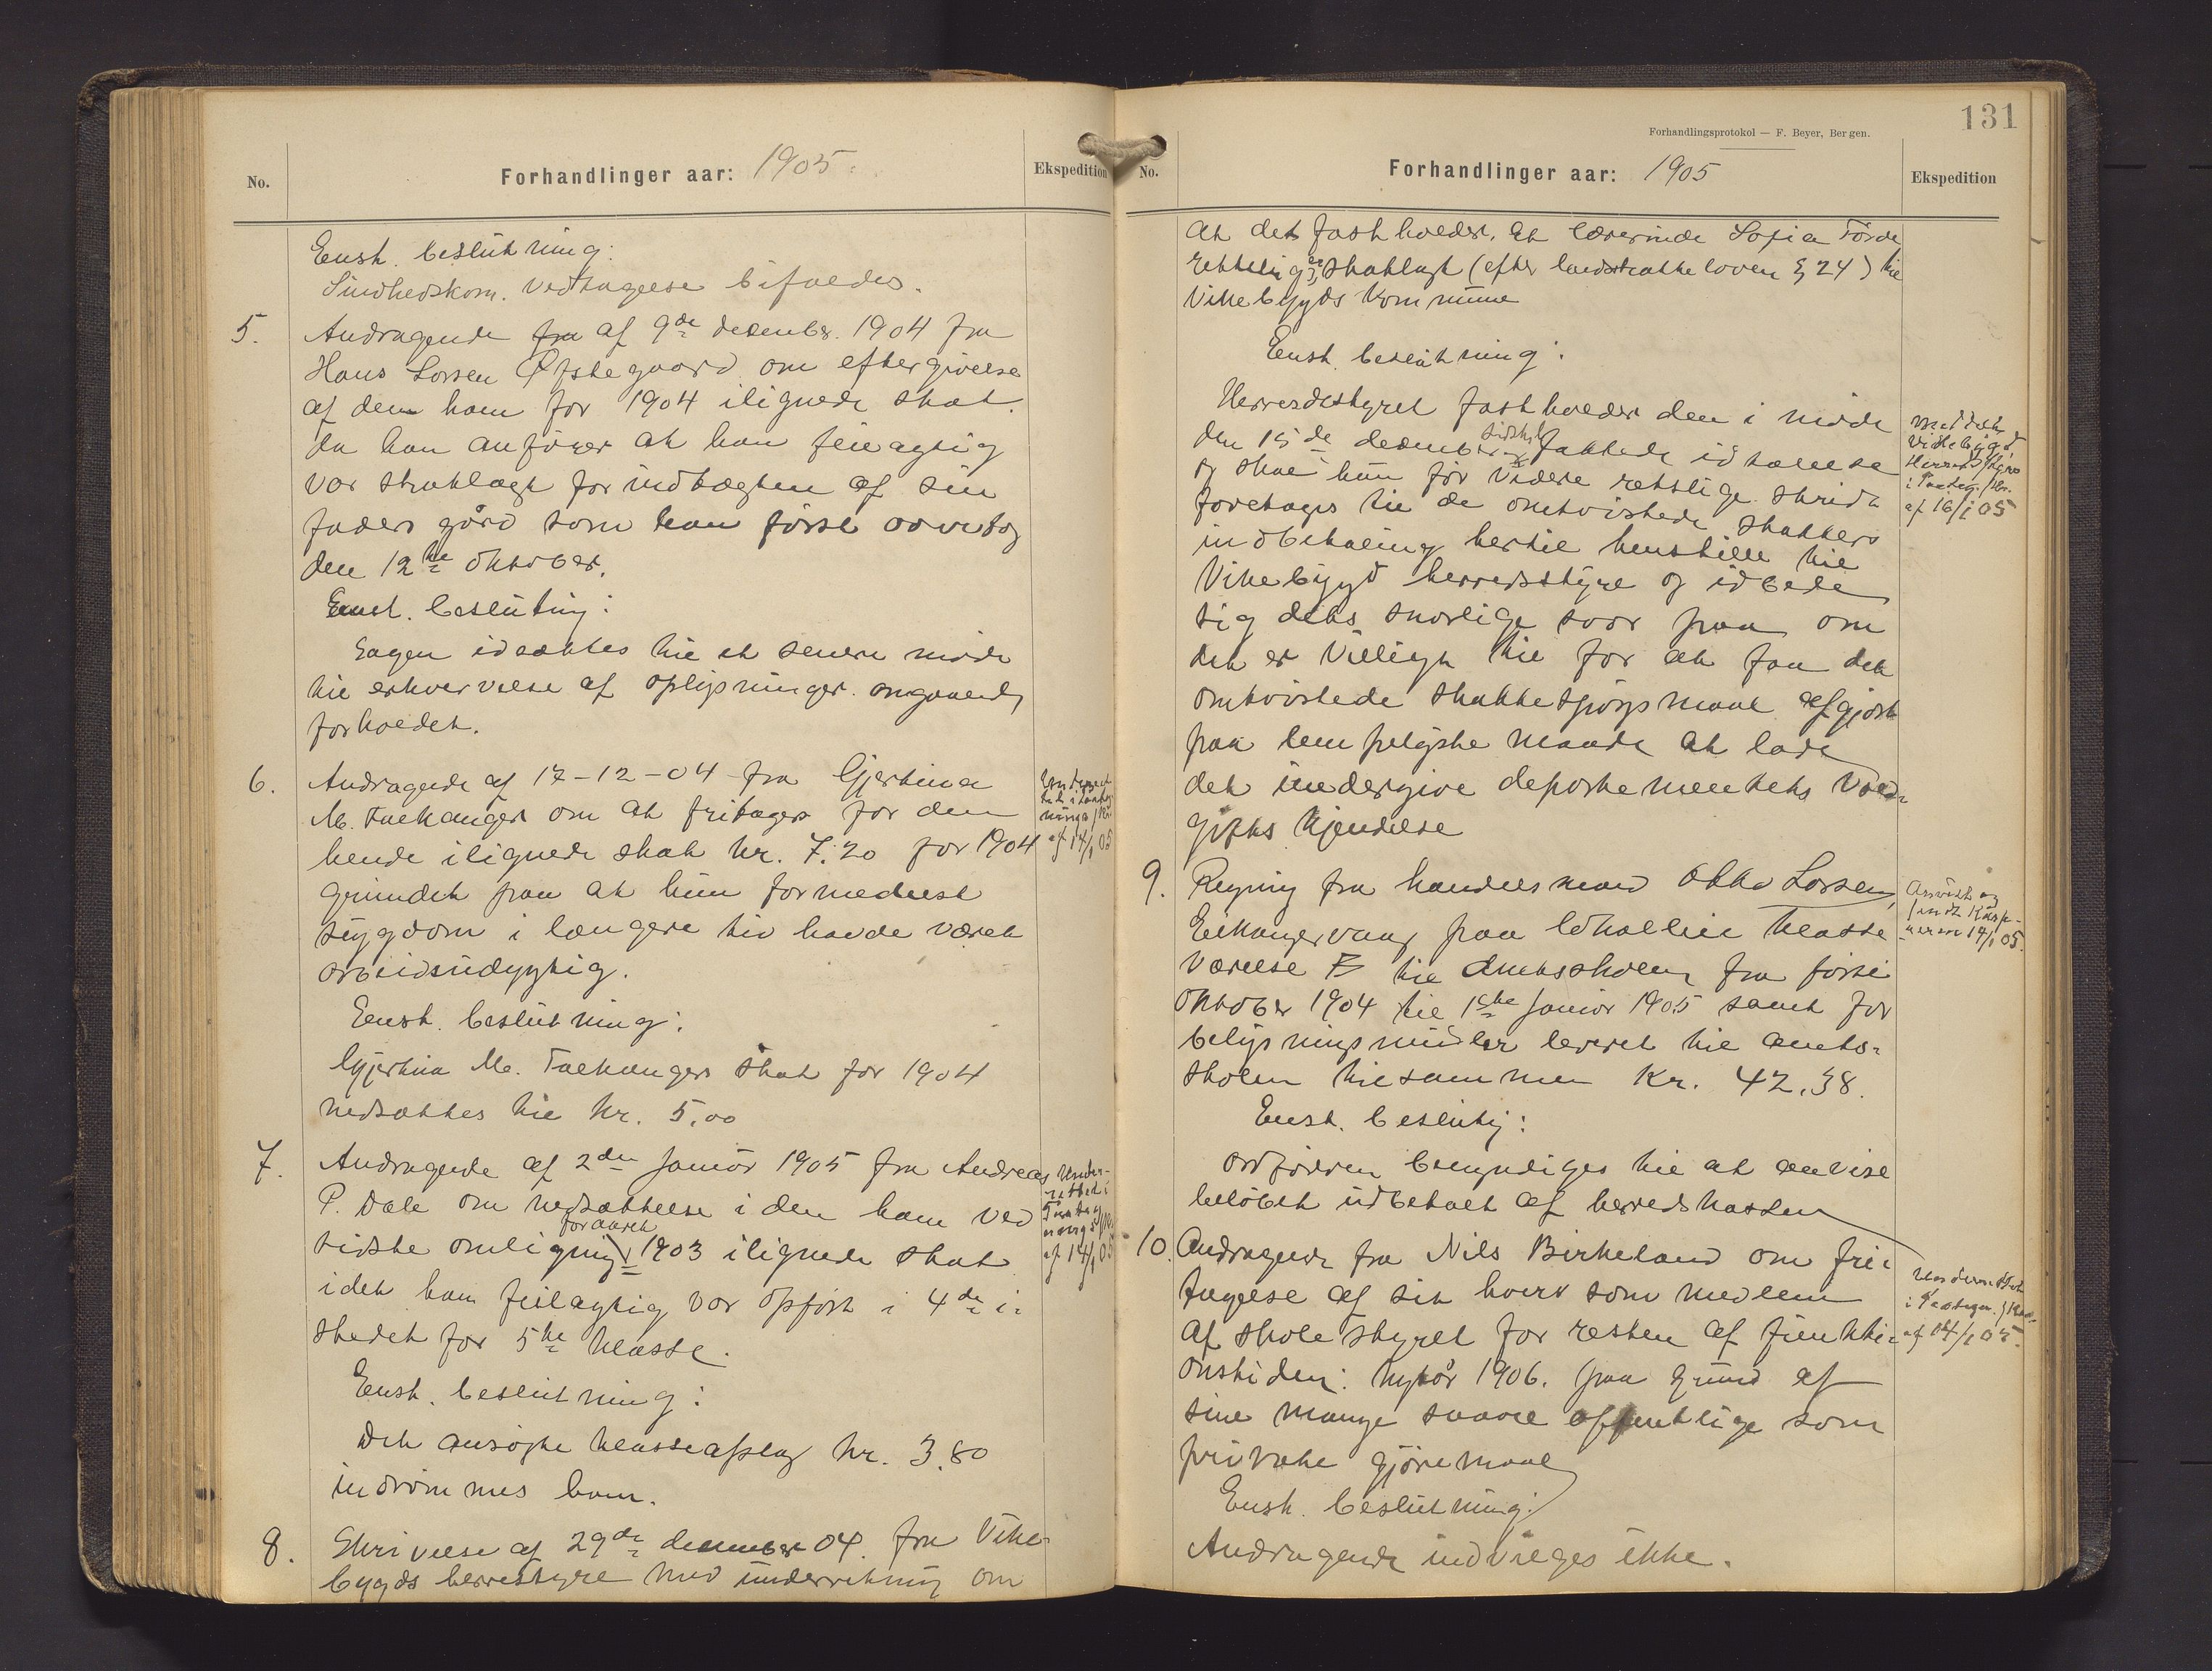 No.
Forhandlinger aar: 1905.
Ekspedition
Enst. beslutning:
Sundhedskom. vedtagelse bifaldes.
5. Andragende fra af 9de desember. 1904 fra
Hans Larsen Øfstegaard om eftergivelse
af den ham for 1904 ilignede skat.
da han anförer at han feilagtig
var skatlagt for indtægten af sin
faders gård som han först overtog
den 12te oktober.
Enst. beslutning:
Sagen udsættes til et senere möde
til erhvervelse af oplysninger angaaende
forholdet.
6. Andragende af 17-12-04 fra Gjertina
M. Falkanger om at fritages for den
hende ilignede skat kr. 7.20 for 1904
grundet paa at hun formedelst
sygdom i længere tid havde været
arbeidsudygtig.
Enst. beslutning:
Gjertina M. Falkangers skat for 1904
nedsættes til kr. 5,00
af 14/1 05
7. Andragende af 2den januar 1905 fra Andreas
P. Dale om nedsættelse i den ham ved
sidste omligning for aaret 1903 ilignede skat
idet han feilagtig var opfört i 4de i-
stedet for 5te klasse.
Enst. beslutning:
Det ansögte klasseafslag kr. 3.80
indrömmes ham.
Under-
rettet i
af 14/1 05
8. Skrivelse af 29de desember 04. fra Vike-
bygds herredstyre med underretning om
131
Forhandlingsprotokol — F. Beyer, Bergen.
No.
Forhandlinger aar: 1905
Ekspedition
at det fastholder, at lærerinde Sofia Förde
rettelig er skatlagt (efter landsskatteloven § 24) til
Vikebygds kommune
Enst. beslutning:
Herredstyret fastholder den i möde
den 15de desember sidstl. fattede udtalelse
og skal hun för videre retslige skridt
foretages til de omtvistede skatters
indbetaling hertil henstille til
Vikebygd herredsstyre og udbede
sig dets snarlige svar paa om
det er villigt til for at faa det
omtvistede skattespörgsmaal afgjort
paa lempeligste maade at lade
det undergive departementets vold-
gifts kjendelse
Meddelt
Vikebygd
Herredstyre
af 16/1 05
9. Regning fra handelsmand Otto Larsen,
Eikangervaag paa lokalleie klasse
værelse til Amtsskolen fra förste
oktober 1904 til 1ste januar 1905 samt for
belysningsmidler leveret til amts-
skolen tilsammen kr. 42,38.
Enst. beslutning:
Ordföreren bemyndiges til at anvise
belöbet udbetalt af herredskassen
Anvist og
sendt Kas-
sereren 14/1 05.
10. Andragende fra Nils Birkeland om fri-
tagelse af sit hverv som medlem
af skolestyret for resten af funkti-
onstiden: nytår 1906. paa grund af
sine mange saavel offentlige som
private gjöremaal
Enst. beslutning:
Andragende indvilges ikke.
Underrettet
af 14/1 05.